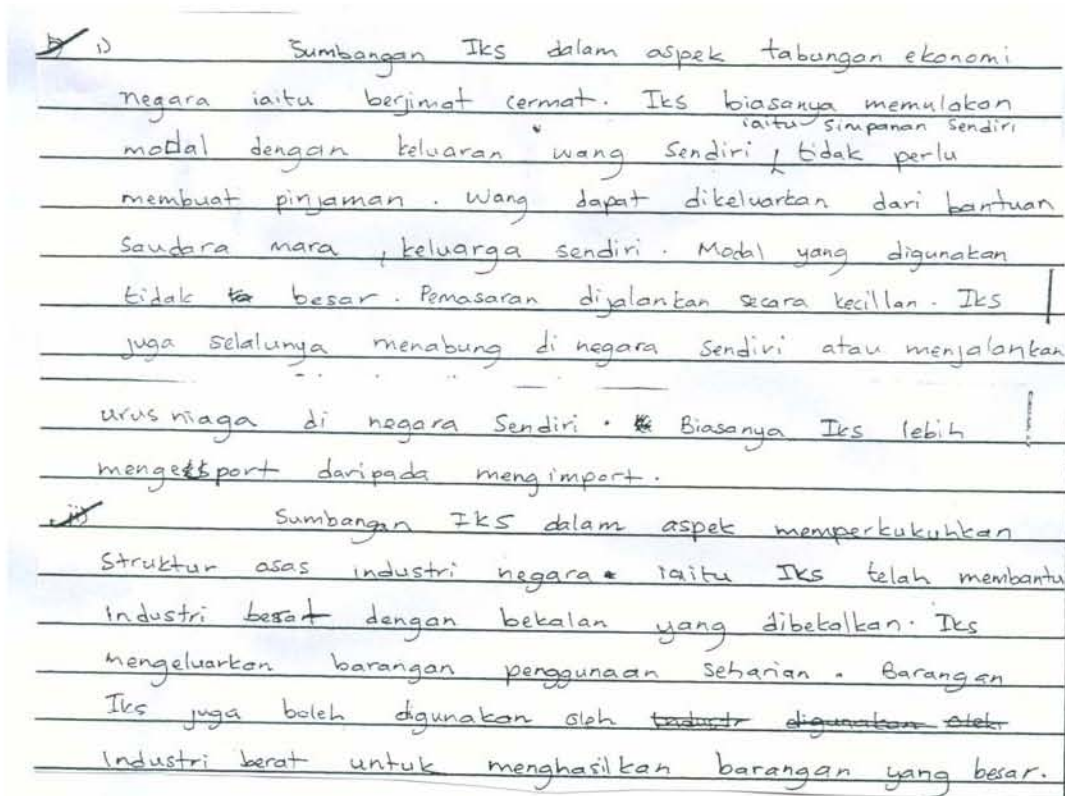 b) i) Sumbangan Iks dalam aspek tabungan ekonomi
negara iaitu berjimat cermat. Iks biasanya memulakan
iaitu simpanan sendiri
modal dengan keluaran wang sendiri, tidak perlu
membuat pinjaman. Wang dapat dikeluarkan dari bantuan
Saudara mara, keluarga sendiri. Modal yang digunakan
tidak besar. Pemasaran dijalankan secara kecillan. Iks
juga selalunya menabung di negara sendiri atau menjalankan
urus niaga di negara sendiri. Biasanya Iks lebih
mengeksport daripada mengimport.
ii) Sumbangan IKS dalam aspek memperkukuhkan
Struktur asas industri negara iaitu Iks telah membantu
Industri berat dengan bekalan yang dibekalkan. Iks
mengeluarkan barangan penggunaan seharian. Barangan
Iks juga boleh digunakan oleh digunakan oleh
Industri berat untuk menghasilkan barangan yang besar.